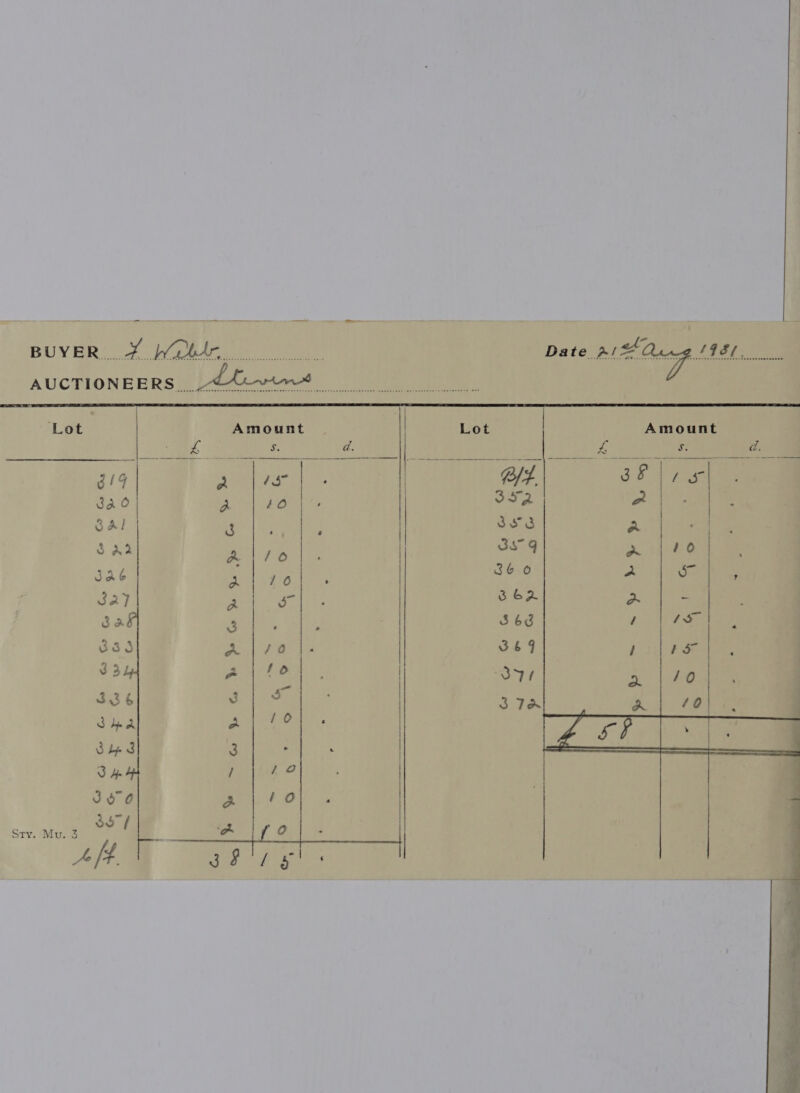 BUYER
Date 21st Aug 1931
AUCTIONEERS Stevens
Lot Amount Lot Amount
£ s. d. £ s. d.
319 2 15 . B/F. 38 15 .
320 2 10 . 352 2 . .
321 3 . . 353 2 . .
322 2 10 . 359 2 10 .
326 2 10 . 360 2 5 .
327 2 5 . 362 2 -
328 3 . . 363 1 15 .
333 2 10 . 369 1 15 .
334 2 10 . 371 2 10 .
336 3 5 372 2 10 .
342 2 10 . £ 58 . .
343 3 . .
344 1 10 .
350 2 10 .
351 2 10 .
Sty. Mu. 3
c/f. 38 15 .